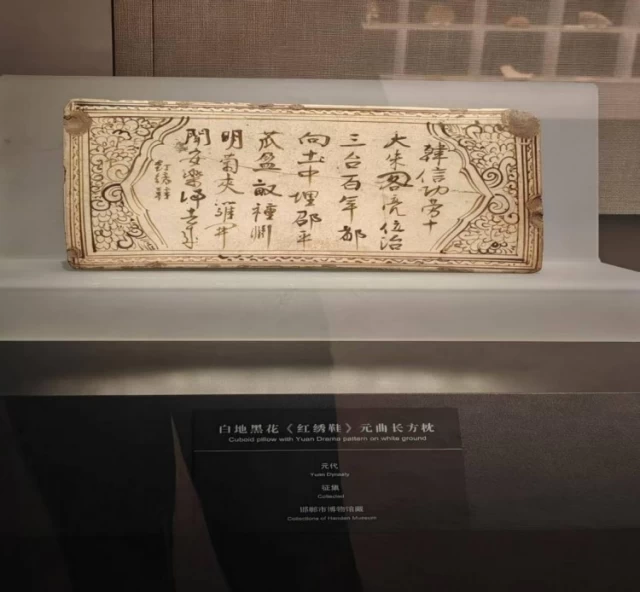 韓信功劳十
大朱阁亮位治
三台百年都
向土中埋邵平
瓜盈畝種渊
明菊夾羅开
闻安樂归去来
红绣鞋
白地黑花《红绣鞋》元曲长方枕
Cuboid pillow with Yuan Drama pattern on white ground
元代
Yuan Dynasty
征集
Collected
邯郸市博物馆藏
Collections of Handan Museum